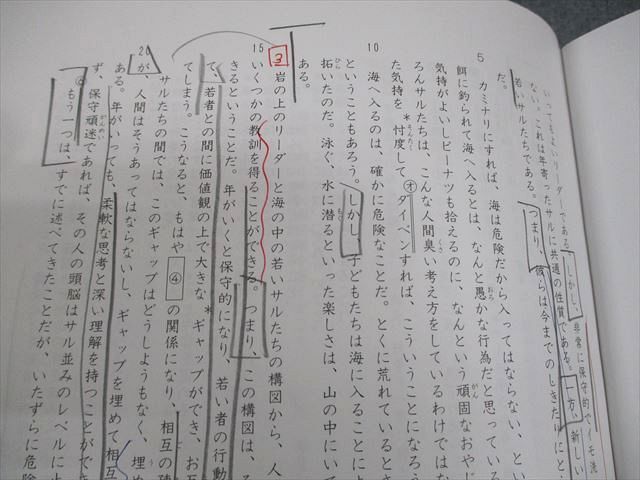 いってもよいリーダーである。しかし、非常に保守的で、イモ洗
ない。これは年寄ったサルに共通の性質である。一方、新しい
若いサルたちである。つまり、彼らは今までのしきたりにと
だ。
5
カミナリにすれば、海は危険だから入ってはならない、とい
餌に釣られて海へ入るとは、なんと愚かな行為だと思っている
気持がよいしピーナツも拾えるのに、なんという頑固なおやじ
ろんサルたちは、こんな人間臭い考え方をしているわけではな
た気持を*忖度してオダイベンすれば、こういうことになろう
10
海へ入るのは、確かに危険なことだ。とくに荒れているとき
ということもあろう。しかし、子どもたちは海に入ることによ
拓いたのだ。泳ぐ、水に潜るといった楽しさは、山の中にいて
ある。
3
岩の上のリーダーと海の中の若いサルたちの構図から、人
15
いくつかの教訓を得ることができる。つまり、この構図は、
きるということだ。年がいくと保守的になり、若い者の行動
て、若者との間に価値観の上で大きな*ギャップができ、お互
てしまう。こうなると、もはや④の関係になり、相互の
サルたちの間では、このギャップはどうしようもなく、埋め
20
が、人間はそうあってはならないし、ギャップを埋めて相互
ある。年がいっても、柔軟な思考と深い理解を持つことができ
ず、保守頑迷であれば、その人の頭脳はサル並みのレベルに止
もう一つは、すでに述べてきたことだが、いたずらに危険